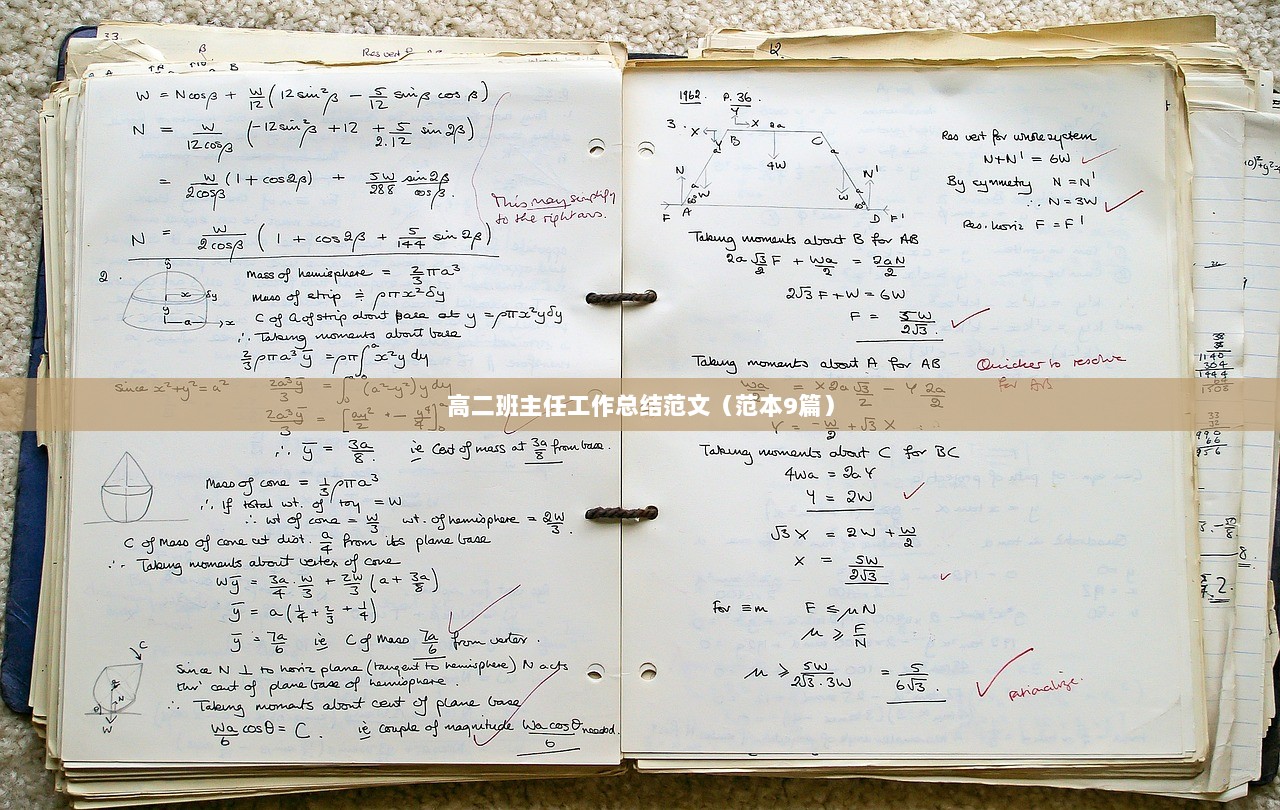 33.
β
Res vert
W = Ncosβ + W/12 (12 sin²β − 5/12 sinβ cosβ)
N = W/12cosβ (−12sin²β + 12 + 5/2.12 sin2β)
= W/2cosβ (1 + cos2β) + 5W/288 sin2β/cosβ.
This may simplify
to the right ans.
N = W/2cosβ (1 + cos2β + 5/144 sin2β)
2.
Mass of hemisphere = 2/3 πa³
Mass of strip ≑ ρπx²δy
C of G of strip about base at y = ρπx²yδy
∴ Taking moments about base
2/3 ρπa³ȳ = ρπ∫₀ᵃ x²y dy
Since x²+y² = a² 2a³ȳ/3 = ∫₀ᵃ (a²−y²) y dy
高二班主任工作总结范文（范本9篇）
∴ ȳ = 3a/8. ie Cent of mass at 3a/8 from base.
Mass of cone = 1/3 ρπa³
∴ If total wt. of toy = W
∴ wt of cone = W/3 wt. of hemisphere = 2W/3.
C of Mass of cone at dist. a/4 from its plane base
∴ Taking moments about vertex of cone
Wȳ = 3a/4 . W/3 + 2W/3 (a + 3a/8)
ȳ = a(1/4 + 2/3 + 1/4)
ȳ = 7a/6 ie C of Mass 7a/6 from vertex.
C
Since N ⊥ to horiz plane (tangent to hemisphere) N acts
thro' cent of plane base of hemisphere.
∴ Taking moments about cent of plane base
Wa/6 cosθ = C. ie couple of magnitude Wa cosθ/6 needed.
12.
1962. P. 36.
3.
X B C
4W
N N'
F A D F'
Res vert for whole system
N+N' = 6W
By symmetry N = N'
∴ N = 3W
Res. horiz F = F'
Taking moments about B for AB
2a √3/2 F + Wa/2 = 2aN/2
2√3 F + W = 6W
F = 5W/2√3.
Taking moments about A for AB
Quicker to resolve
for AB
Wa/2 = X2a √3/2 − Y 2a/2
Y = −W/2 + √3 X
Taking moments about C for BC
4Wa = 2aY
Y = 2W
√3 X = 2W + W/2
X = 5W/2√3
For ≡m F ≤ μN
μ ≥ F/N
μ ≥ 5W/2√3.3W = 5/6√3.
rationalize.